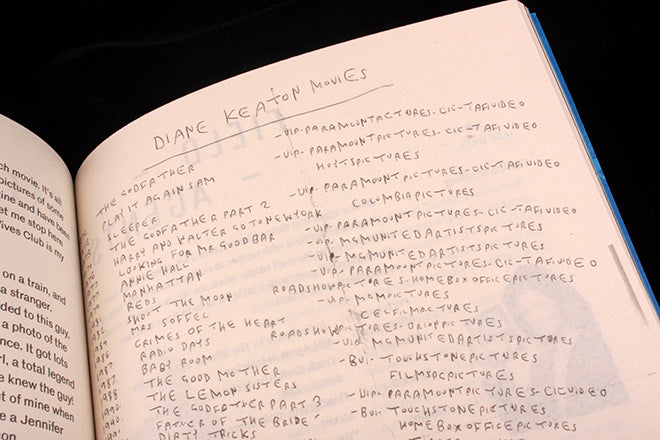 ch movie. It's all
pictures of some
cine and have been
et me stop here
Wives Club is my
on a train, and
a stranger.
rded to this guy,
a photo of the
nce. It got lots
rl, a total legend
e knew the guy!
t of mine when
e a Jennifer
DIANE KEATON MOVIES
THE GODFATHER -UIP-PARAMOUNTPICTURES-CIC-TAFVIDEO
PLAY IT AGAIN SAM -UIP-PARAMOUNTPICTURES-CIC-TAFVIDEO
SLEEPER
THE GODFATHER PART 2 -UIP-PARAMOUNTPICTURES-CIC-TAFIVIDEO
HARRY AND WALTER GO TO NEW YORK COLUMBIAPICTURES
LOOKING FOR MR GOODBAR -UIP-PARAMOUNTPICTURES-CIC-TAFVIDEO
ANNIE HALL -UIP-MGMUNITEDARTISTSPICTURES
MANHATTAN -UIP-MGMUNITEDARTISTSPICTURES
REDS -UIP-PARAMOUNTPICTURES-CIC-TAFVIDEO
SHOOT THE MOON
MRS SOFFEL -UIP-MGMPICTURES
CRIMES OF THE HEART
RADIO DAYS
BABY BOOM -UIP-MGMUNITEDARTISTSPICTURES
THE GOOD MOTHER -BUI-TOUCHSTONEPICTURES
THE LEMON SISTERS
THE GODFATHER PART 3 -UIP-PARAMOUNTPICTURES-CICVIDEO
FATHER OF THE BRIDE -BUI-TOUCHSTONEPICTURES
DIRTY TRICKS HOMEBOXOFFICEPICTURES